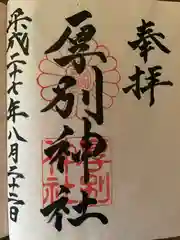 奉拝
原別神社
平成二十七年八月二十二日
原別
神社